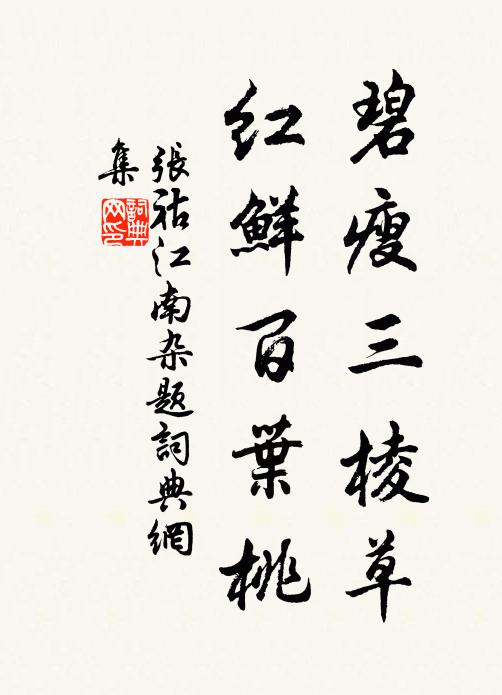 碧瘦三棱草
红鲜百葉桃
張祜江南杂题詞典網
集
詞典网印